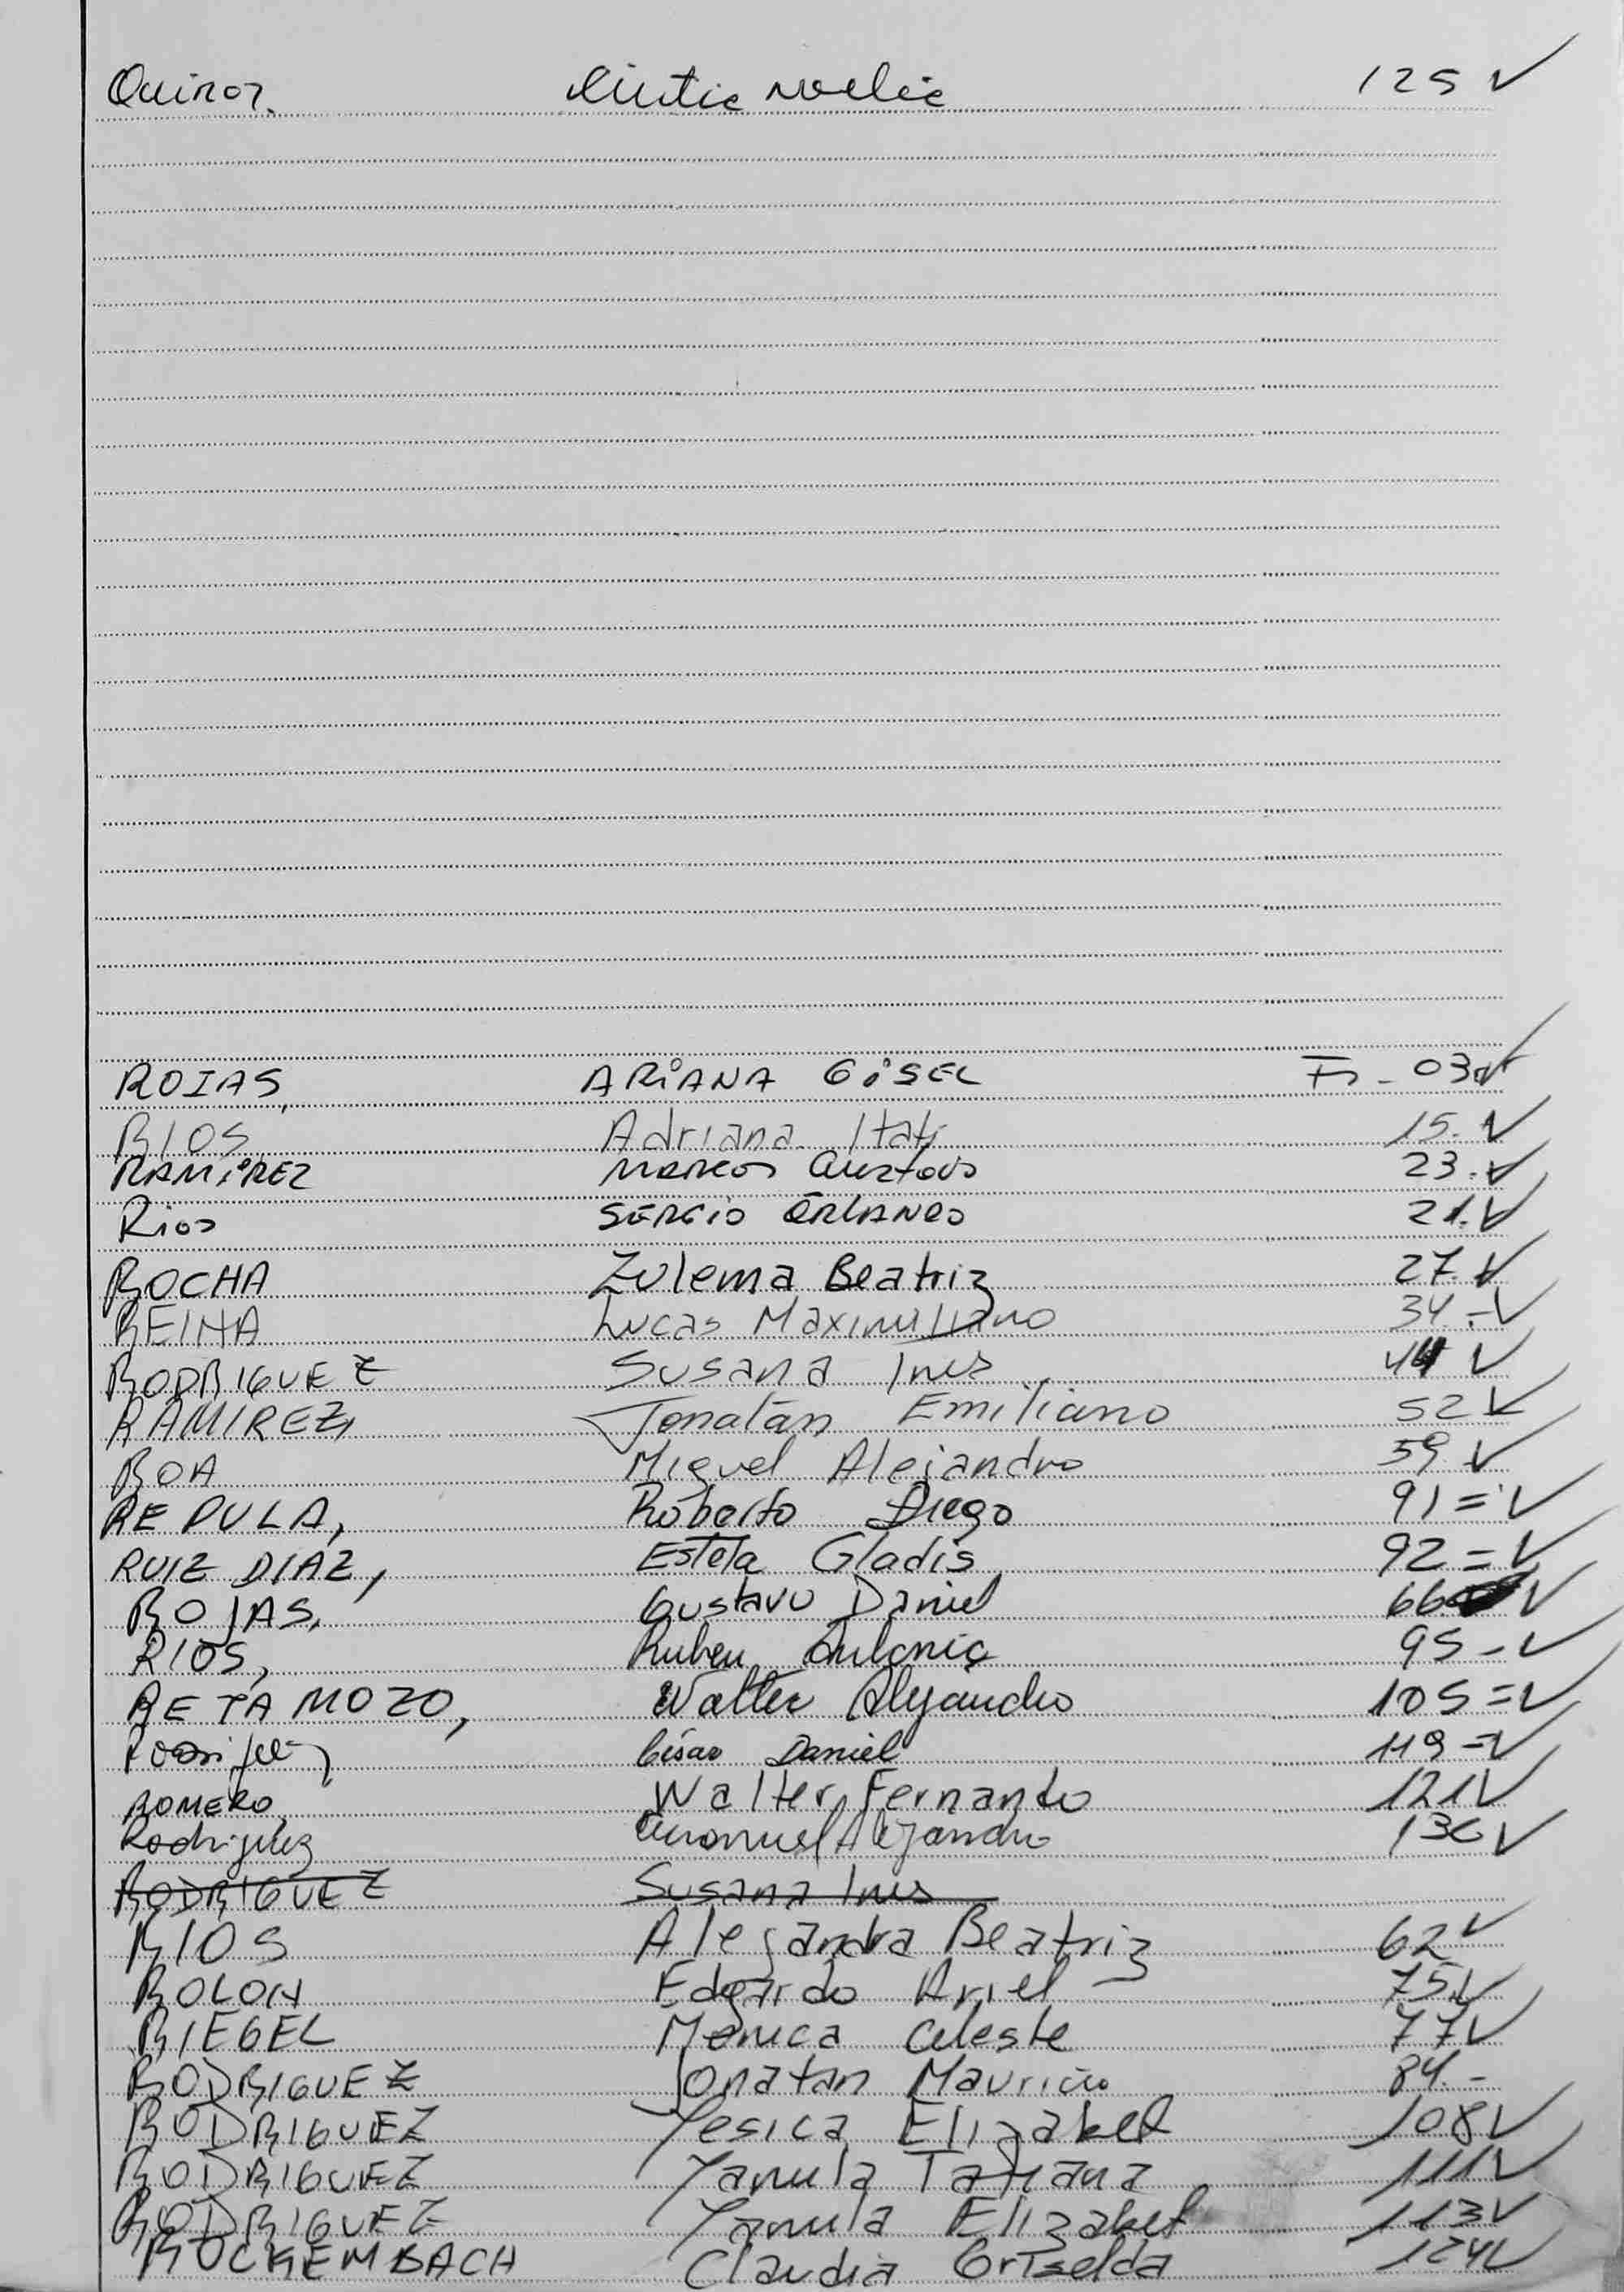 Quiroz. Cintia Noelia 125 ✓
ROJAS, ARIANA GISEL Fs - 03 ✓
RIOS Adriana Itatí 15. ✓
RAMIREZ Marcos Gustavo 23. ✓
Rios SERGIO ORLANDO 21. ✓
ROCHA Zulema Beatriz 27. ✓
REINA Lucas Maximiliano 34. - ✓
RODRIGUEZ Susana Ines ✓
RAMIREZ, Jonatán Emiliano 52 ✓
ROA Miguel Alejandro 59 ✓
REPULA, Roberto Diego 91 = ✓
RUIZ DIAZ, Estela Gladis 92 = ✓
ROJAS. Gustavo Daniel 66 ✓
RIOS, Ruben Antonio 95 - ✓
RETAMOZO, Walter Alejandro 105 = ✓
Rodriguez César Daniel 119 = ✓
ROMERO, Walter Fernando 121 ✓
Rodriguez Alejandro ✓
RODRIGUEZ Susana Ines
RIOS Alejandra Beatriz 62 ✓
ROLON Edgardo Ariel 75. ✓
RIEGEL Monica Celeste 77 ✓
RODRIGUEZ Jonatan Mauricio 84. -
RODRIGUEZ Yesica Elizabet 108 ✓
RODRIGUEZ Yamila Tatiana 111 ✓
RODRIGUEZ Yamila Elizabet 113 ✓
ROCKEMBACH Claudia Griselda 124 ✓